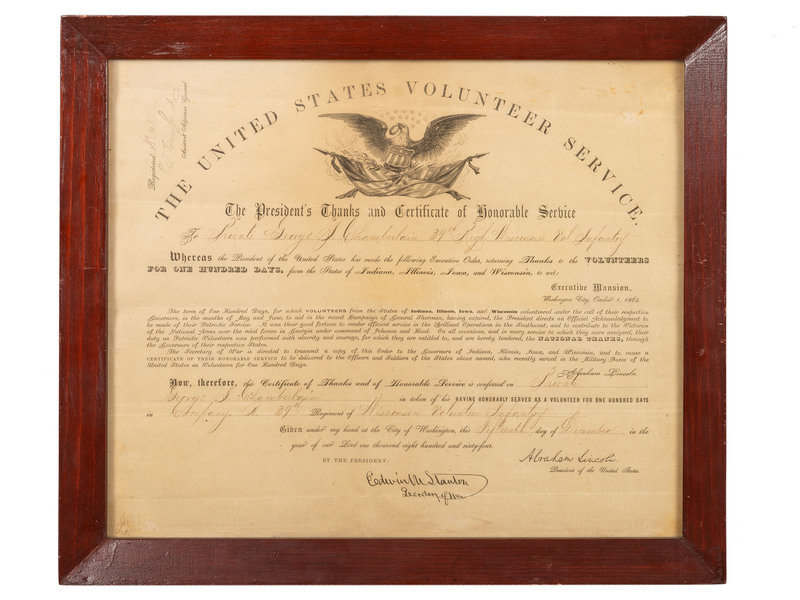 THE UNITED STATES VOLUNTEER SERVICE.
The President's Thanks and Certificate of Honorable Service
To Private George J. Chamberlain 39th Regt. Wisconsin Vol. Infantry
Whereas the President of the United States has made the following Executive Order, returning Thanks to the VOLUNTEERS
FOR ONE HUNDRED DAYS, from the States of Indiana, Illinois, Iowa, and Wisconsin, to wit:
Executive Mansion,
Washington City, October 1, 1864.
The term of One Hundred Days, for which VOLUNTEERS from the States of Indiana, Illinois, Iowa, and Wisconsin volunteered under the call of their respective
Governors, in the months of May and June, to aid in the recent Campaign of General Sherman, having expired, the President directs an Official Acknowledgment to
be made of their Patriotic Service. It was their good fortune to render efficient service in the Brilliant Operations in the Southwest, and to contribute to the Victories
of the National Arms over the rebel forces in Georgia under command of Johnson and Hood. On all occasions, and in every service to which they were assigned, their
duty as Patriotic Volunteers was performed with alacrity and courage, for which they are entitled to, and are hereby tendered, the NATIONAL THANKS, through
the Governors of their respective States.
The Secretary of War is directed to transmit a copy of this Order to the Governors of Indiana, Illinois, Iowa, and Wisconsin, and to cause a
CERTIFICATE OF THEIR HONORABLE SERVICE to be delivered to the Officers and Soldiers of the States above named, who recently served in the Military Force of the
United States as Volunteers for One Hundred Days.
Abraham Lincoln.
Now, therefore, this Certificate of Thanks and of Honorable Service is conferred on Private
George J. Chamberlain in token of his HAVING HONORABLY SERVED AS A VOLUNTEER FOR ONE HUNDRED DAYS
in Company 39th Regiment of Wisconsin Volunteer Infantry
Given under my hand at the City of Washington, this Fifteenth day of December in the
year of our Lord one thousand eight hundred and sixty-four.
BY THE PRESIDENT:
Abraham Lincoln
President of the United States.
Edwin M Stanton
Secretary of War